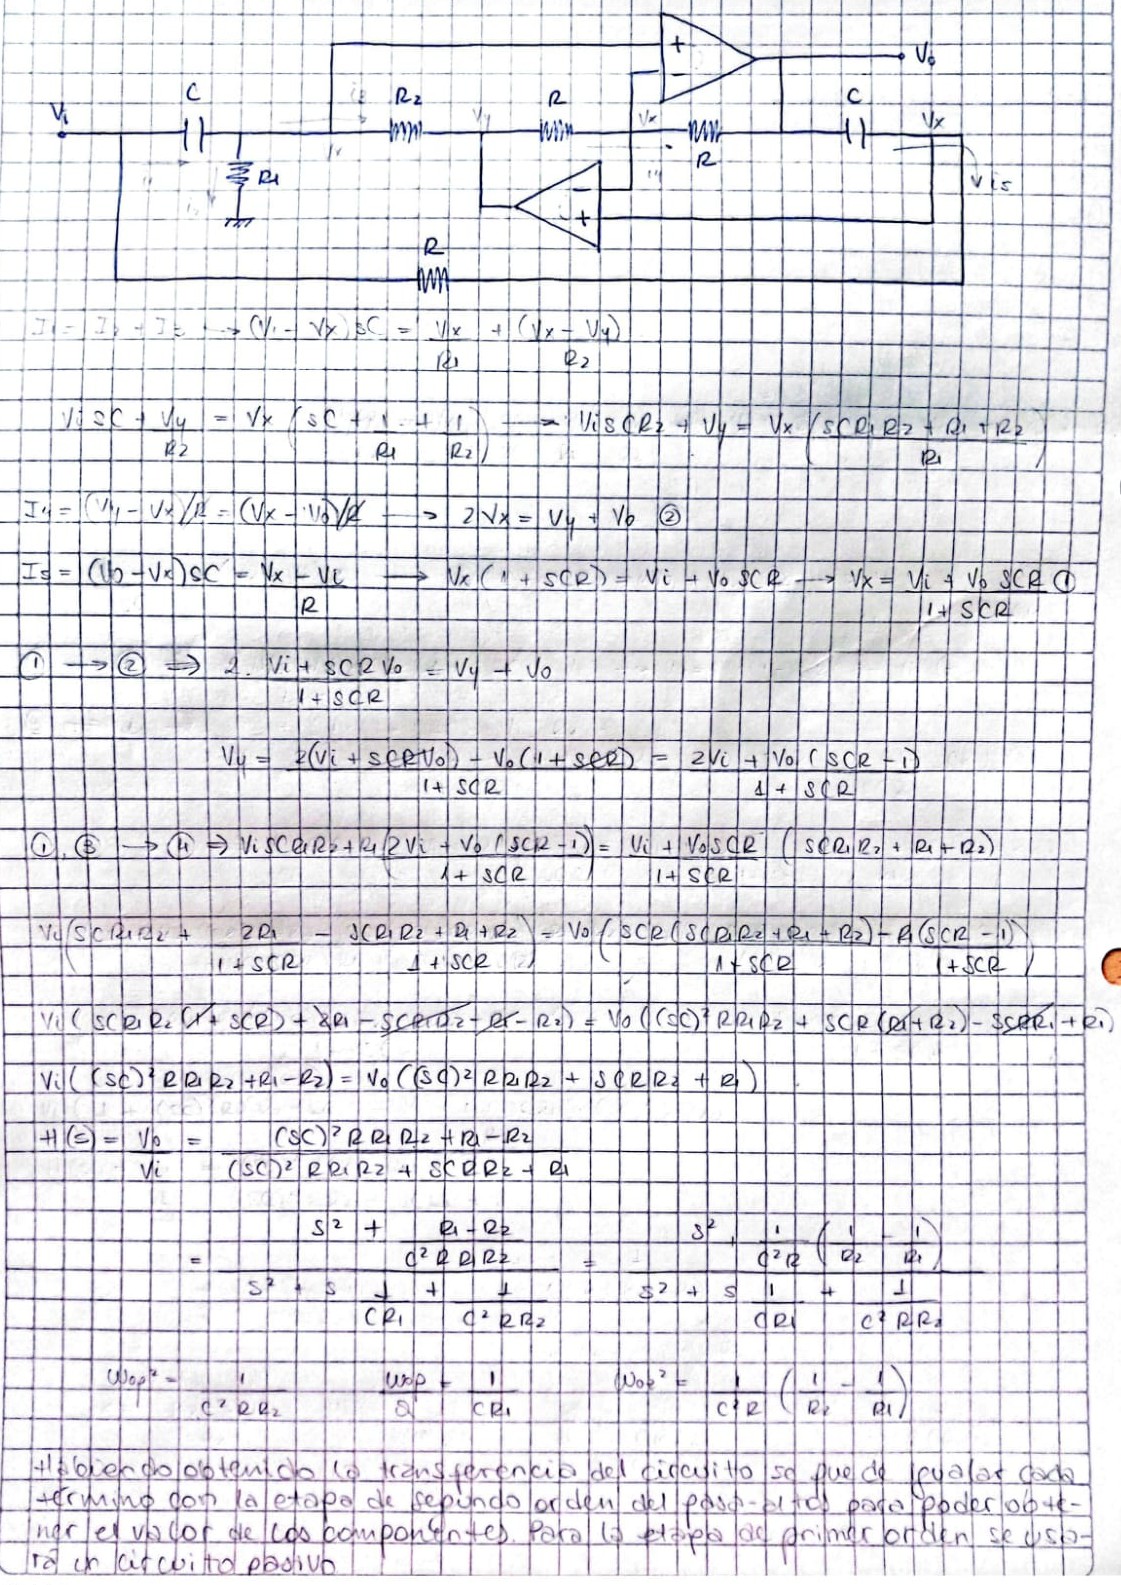 Vi
C
R1
R2
Vy
R
Vx
R
+
-
Vo
C
Vx
i5
-
+
R
I1 = I2 + I3 → (Vi - Vx)SC = Vx/R1 + (Vx - Vy)/R2
ViSC + Vy/R2 = Vx (SC + 1/R1 + 1/R2) → ViSCR2 + Vy = Vx (SCR1R2 + R1 + R2)/R1
I4 = (Vy - Vx)/R = (Vx - Vo)/R → 2Vx = Vy + Vo ②
I5 = (Vo - Vx)SC = (Vx - Vi)/R → Vx(1 + SCR) = Vi + VoSCR → Vx = (Vi + VoSCR)/(1 + SCR) ①
① → ② ⇒ 2. (Vi + SCRVo)/(1 + SCR) = Vy + Vo
Vy = (2(Vi + SCRVo) - Vo(1 + SCR))/(1 + SCR) = (2Vi + Vo(SCR - 1))/(1 + SCR)
①, ③ → ④ ⇒ ViSCR1R2 + R1 (2Vi + Vo(SCR - 1))/(1 + SCR) = (Vi + VoSCR)/(1 + SCR) (SCR1R2 + R1 + R2)
Vi (SCR1R2 + 2R1/(1 + SCR) - (SCR1R2 + R1 + R2)/(1 + SCR)) = Vo (SCR(SCR1R2 + R1 + R2)/(1 + SCR) - R1(SCR - 1)/(1 + SCR))
Vi(SCR1R2(1 + SCR) + 2R1 - SCR1R2 - R1 - R2) = Vo((SC)²RR1R2 + SCR(R1 + R2) - SCRR1 + R1)
Vi((SC)²RR1R2 + R1 - R2) = Vo((SC)²RR1R2 + SCRR2 + R1)
H(s) = Vo/Vi = ((SC)²RR1R2 + R1 - R2)/((SC)²RR1R2 + SCRR2 + R1)
= (S² + (R1 - R2)/(C²RR1R2))/(S² + S 1/(CR1) + 1/(C²RR2)) = (S² + 1/(C²R) (1/R2 - 1/R1))/(S² + S 1/(CR1) + 1/(C²RR2))
Wop² = 1/(C²RR2) Wop/Q = 1/(CR1) Woz² = 1/(C²R) (1/R2 - 1/R1)
Habiendo obtenido la transferencia del circuito se puede igualar cada
término con la etapa de segundo orden del pasa-altos para poder obte-
ner el valor de los componentes. Para la etapa de primer orden se usa-
rá un circuito pasivo